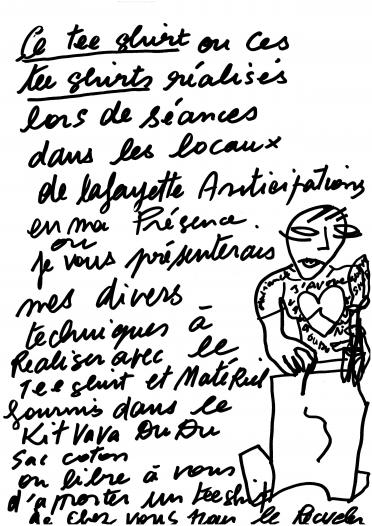 Ce tee shirt ou ces
tee shirts réalisés
lors de séances
dans les locaux
de lafayette Anticipations
en ma Présence.
ou
je vous présenterais
mes divers
techniques à
Realiser avec le
Tee shirt et Matériel
fournis dans le
Kit VaVa DuDu
Sac coton
ou libre à vous
d'apporter un tee shirt
de chez vous le Recycler